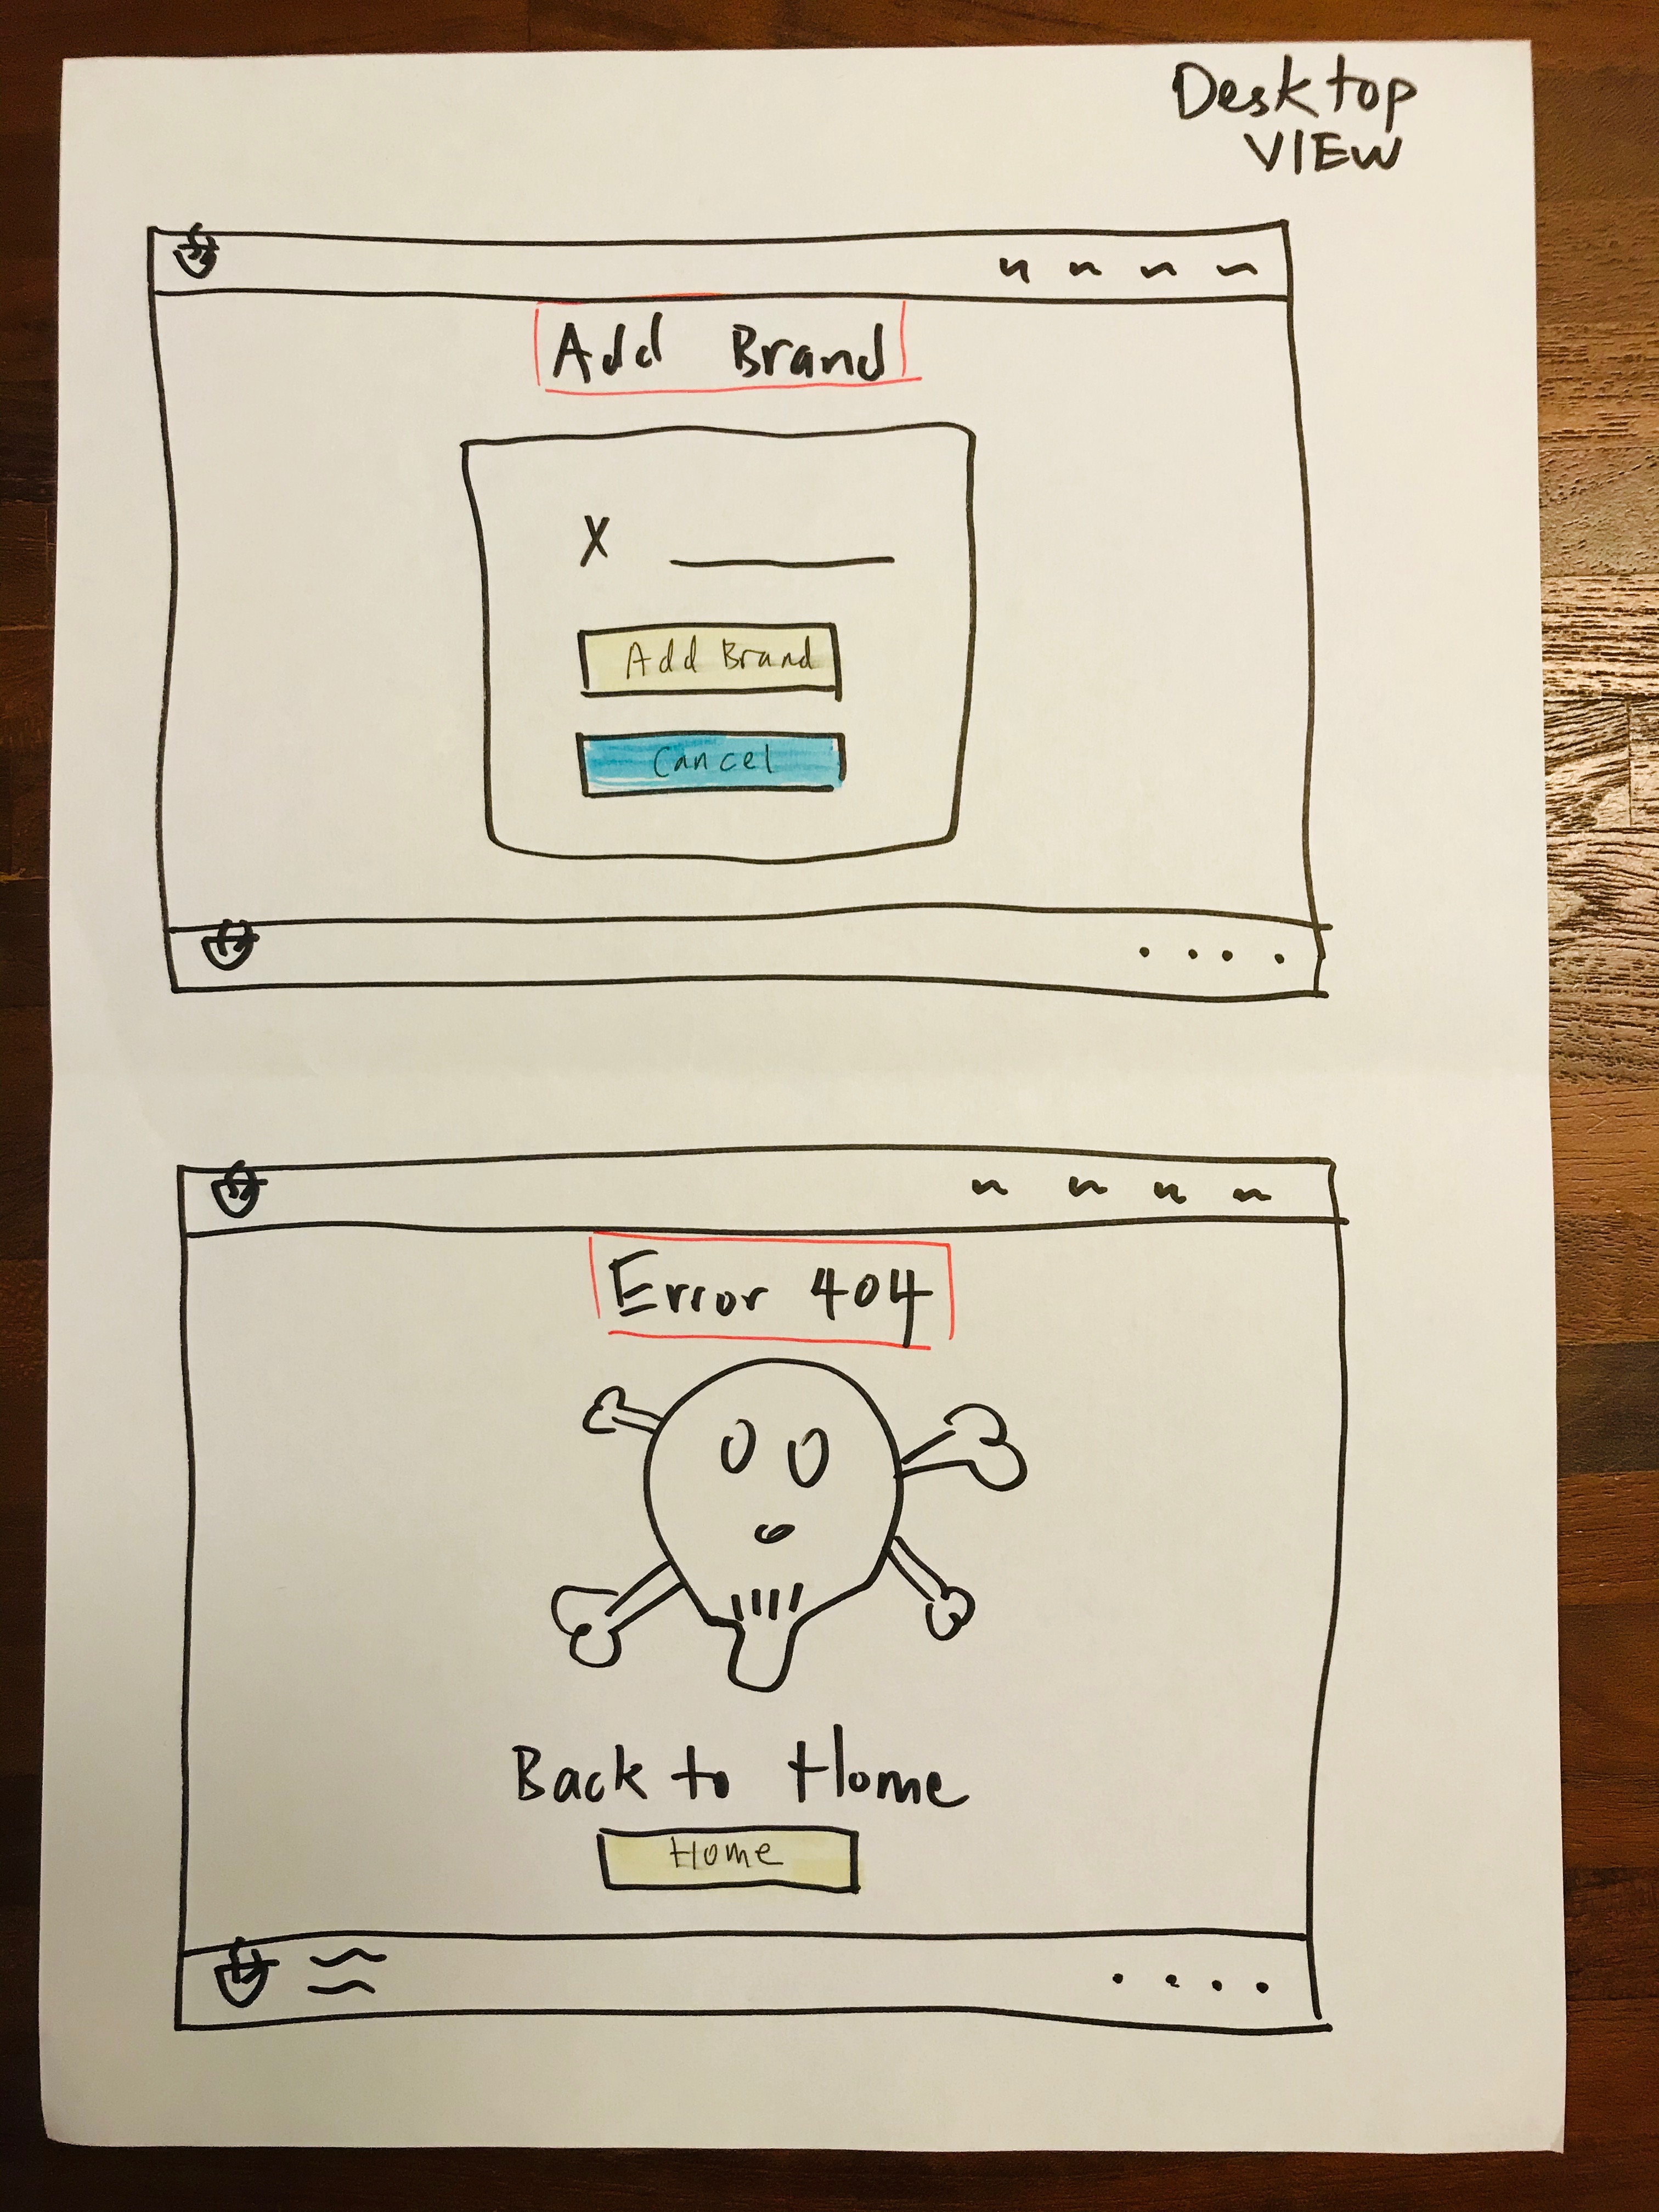 Desktop
VIEW
Add Brand
X
Add Brand
Cancel
Error 404
Back to Home
Home